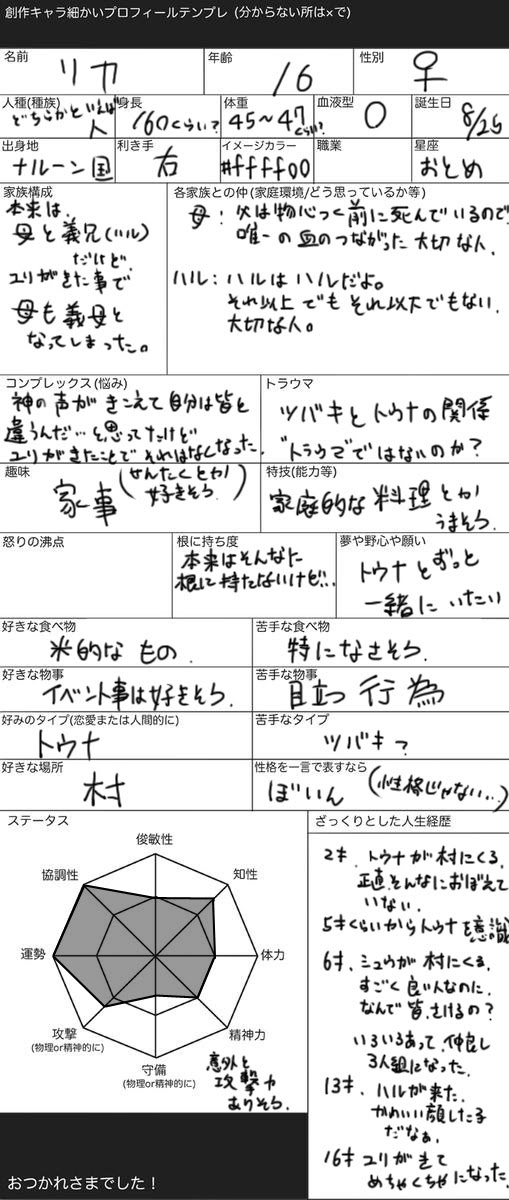 創作キャラ細かいプロフィールテンプレ (分からない所は×で)
名前
リカ
年齢
16
性別
♀
人種(種族)
どちらかといえば
人
身長
160くらい?
体重
45~47
くらい?
血液型
O
誕生日
8/25
出身地
ナルーン国
利き手
右
イメージカラー
#ffff00
職業
星座
おとめ
家族構成
本来は、
母と義兄(ハル)
だけど、
ユリがきた事で
母も義母と
なってしまった。
各家族との仲(家庭環境/どう思っているか等)
母:父は物心つく前に死んでいるので
唯一の血のつながった大切な人、
ハル:ハルはハルだよ。
それ以上でもそれ以下でもない、
大切な人。
コンプレックス(悩み)
神の声がきこえて自分は皆と
違うんだ…と思ってたけど
ユリがきたことでそれはなくなった、
トラウマ
ツバキとトウナの関係
"トラウマ"ではないのか?
趣味
家事(せんたくとか
好きそう、)
特技(能力等)
家庭的な料理とか
うまそう、
怒りの沸点
根に持ち度
本来はそんなに
根に持たないけど…
夢や野心や願い
トウナとずっと
一緒にいたい
好きな食べ物
米的なもの、
苦手な食べ物
特になさそう、
好きな物事
イベント事は好きそう、
苦手な物事
目立つ行為
好みのタイプ(恋愛または人間的に)
トウナ
苦手なタイプ
ツバキ?
好きな場所
村
性格を一言で表すなら
ぼいん(性格じゃない…)
ステータス
俊敏性
協調性
知性
運勢
体力
攻撃
(物理or精神的に)
精神力
守備
(物理or精神的に)
意外と
攻撃力
ありそう、
ざっくりとした人生経歴
2才、トウナが村にくる、
正直そんなにおぼえて
いない、
5才くらいからトウナを意識
6才、ミュウが村にくる、
すごく良い人なのに、
なんで皆、さけるの?
いろいろあって、仲良し
3人組になった、
13才、ハルが来た、
かわいい顔した子
だなぁ、
16才 ユリがきて
めちゃくちゃになった、
おつかれさまでした!